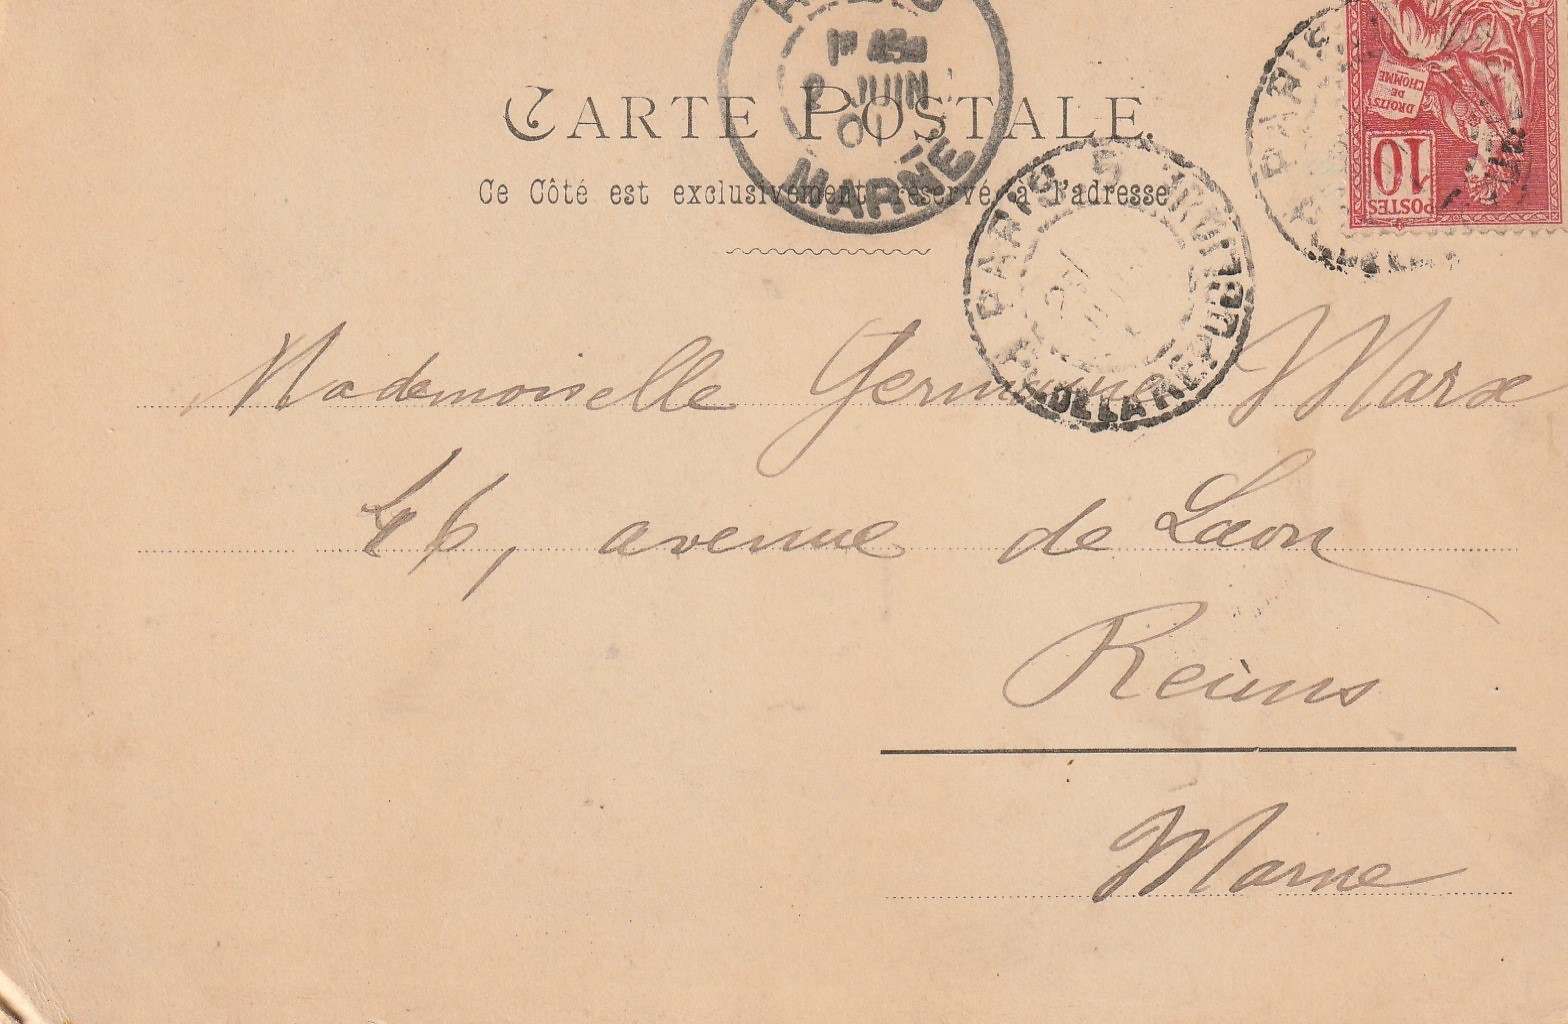 1E 45
2 JUIN
01
MARNE
CARTE POSTALE.
Ce Côté est exclusivement réservé à l'adresse
PARIS
PARIS 5
DE LA REPUBLIQUE
DROITS
DE
L'HOMME
10
POSTES
Mademoiselle Germaine Marx
46, avenue de Laon
Reims
Marne